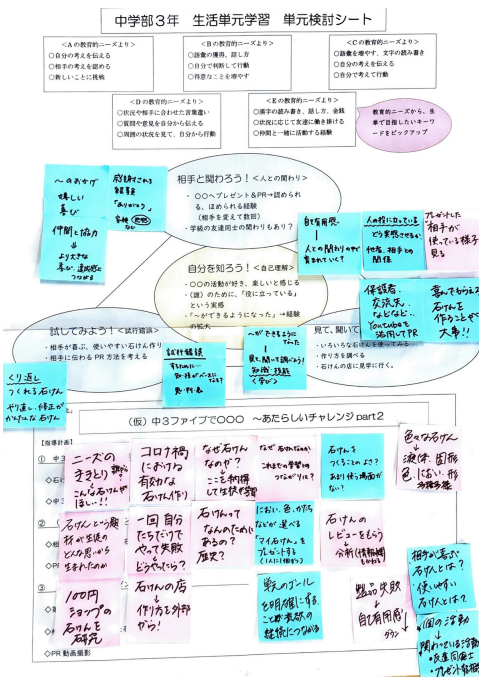 中学部3年 生活単元学習 単元検討シート
<Aの教育的ニーズより>
○自分の考えを伝える
○相手の考えを認める
○新しいことに挑戦
<Bの教育的ニーズより>
○語彙の獲得、話し方
○自分で判断して行動
○得意なことを増やす
<Cの教育的ニーズより>
○語彙を増やす、文字の読み書き
○自分の考えを伝える
○自分で考えて行動
<Dの教育的ニーズより>
○状況や相手に合わせた言葉遣い
○質問や意見を自分から伝える
○周囲の状況を見て、自分から行動
<Eの教育的ニーズより>
○漢字の読み書き、話し方、金銭
○状況に応じて友達に働き掛ける
○仲間と一緒に活動する経験
教育的ニーズから、生
単で目指したいキーワ
ードをピックアップ
相手と関わろう!<人との関わり>
・ ○○へプレゼント&PR→認められ
る、ほめられる経験
(相手を変えて数回)
・学級の友達同士の関わりもあり?
〜のおかげ
嬉しい
喜び
仲間と協力
↓
より大きな
喜び、達成感に
つながる
感謝される
経験
「ありがとう」
自己有用感
人との関わりの中で
育まれていく?
人の役に立っている
どう実感させるか
他者、相手との
関係
プレゼントした
相手が
使っている様子
見る
自分を知ろう!<自己理解>
・○○の活動が好き、楽しいと感じる
・(誰)のために、「役に立っている」
という実感
・「〜ができるようになった」→経験
の拡大
保護者、
交流先、
などなど…
Youtubeを
活用してPR
喜んでもらえる
石けんを
作ることが
大事!!
試してみよう!<試行錯誤>
・相手が喜ぶ、使いやすい石けん作り
・相手に伝わるPR方法を考える
試行錯誤
するために…
〜ができるように
なった
見て、聞いて調べよう!
知識・技能
く学び〉
見て、聞いて
・いろいろな石けんを使ってみる
・作り方を調べる
・石けんの店に見学に行く。
くり返し
つくれる石けん
やり直し、修正が
かんたんな石けん
(仮)中3ファイブで○○○ 〜あたらしいチャレンジ part2
【指導計画】
① 中3
◇石け
◇中3
②
◇PR
③
◇PR動画撮影
ニーズの
ききとり
↓
こんな石けんが
ほしい!!
コロナ禍
における
有効な
石けん作り
なぜ石けん
なのか?
↓
ここを納得
して生徒が学習
なぜ石けんなのか
これまでの学習との
つながりは?
石けんを
つくることのよさ?
あまり使う場面が
ない?
色々な石けん
↓
液体、固形
色、におい、形
石けんという題
材が生徒の
どんな思いから
生まれたのか
一回自分
たちだけで
やって失敗
↓
どうやったら?
石けんって
なんのために
あるの?
歴史?
におい、色、かたち
などが選べる
「マイ石けん」を
プレゼントする
(1人に1個かう)
石けんの
レビューをもらう
↓
分析(情報機)
相手が喜ぶ
石けんとは?
・使いやすい
石けんとは?
100円
ショップの
石けんを
研究
石けんの店
↓
作り方を外部
から!
単元のゴール
を明確にする
ことが意欲の
継続につながる
製品失敗
↓
自己有用感
ダウン
個の活動
↓
関わっている活動
・友達同士
・プレゼント相手